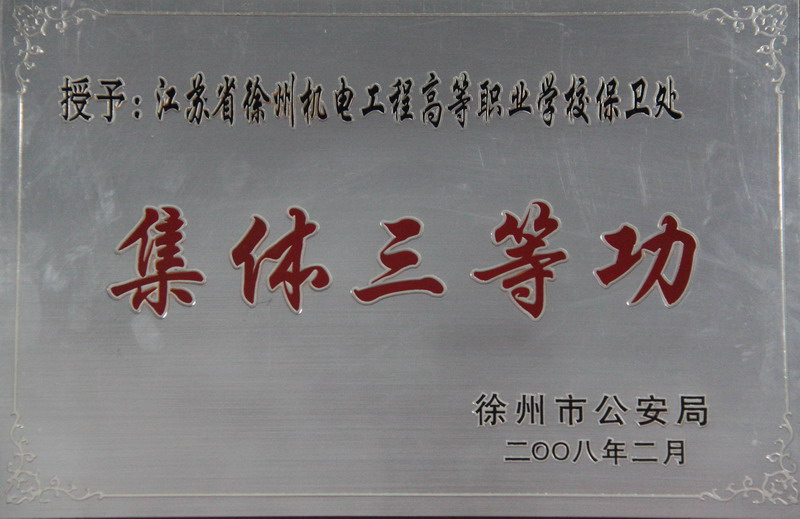 授予：江苏省徐州机电工程高等职业学校保卫处
集体三等功
徐州市公安局
二〇〇八年二月